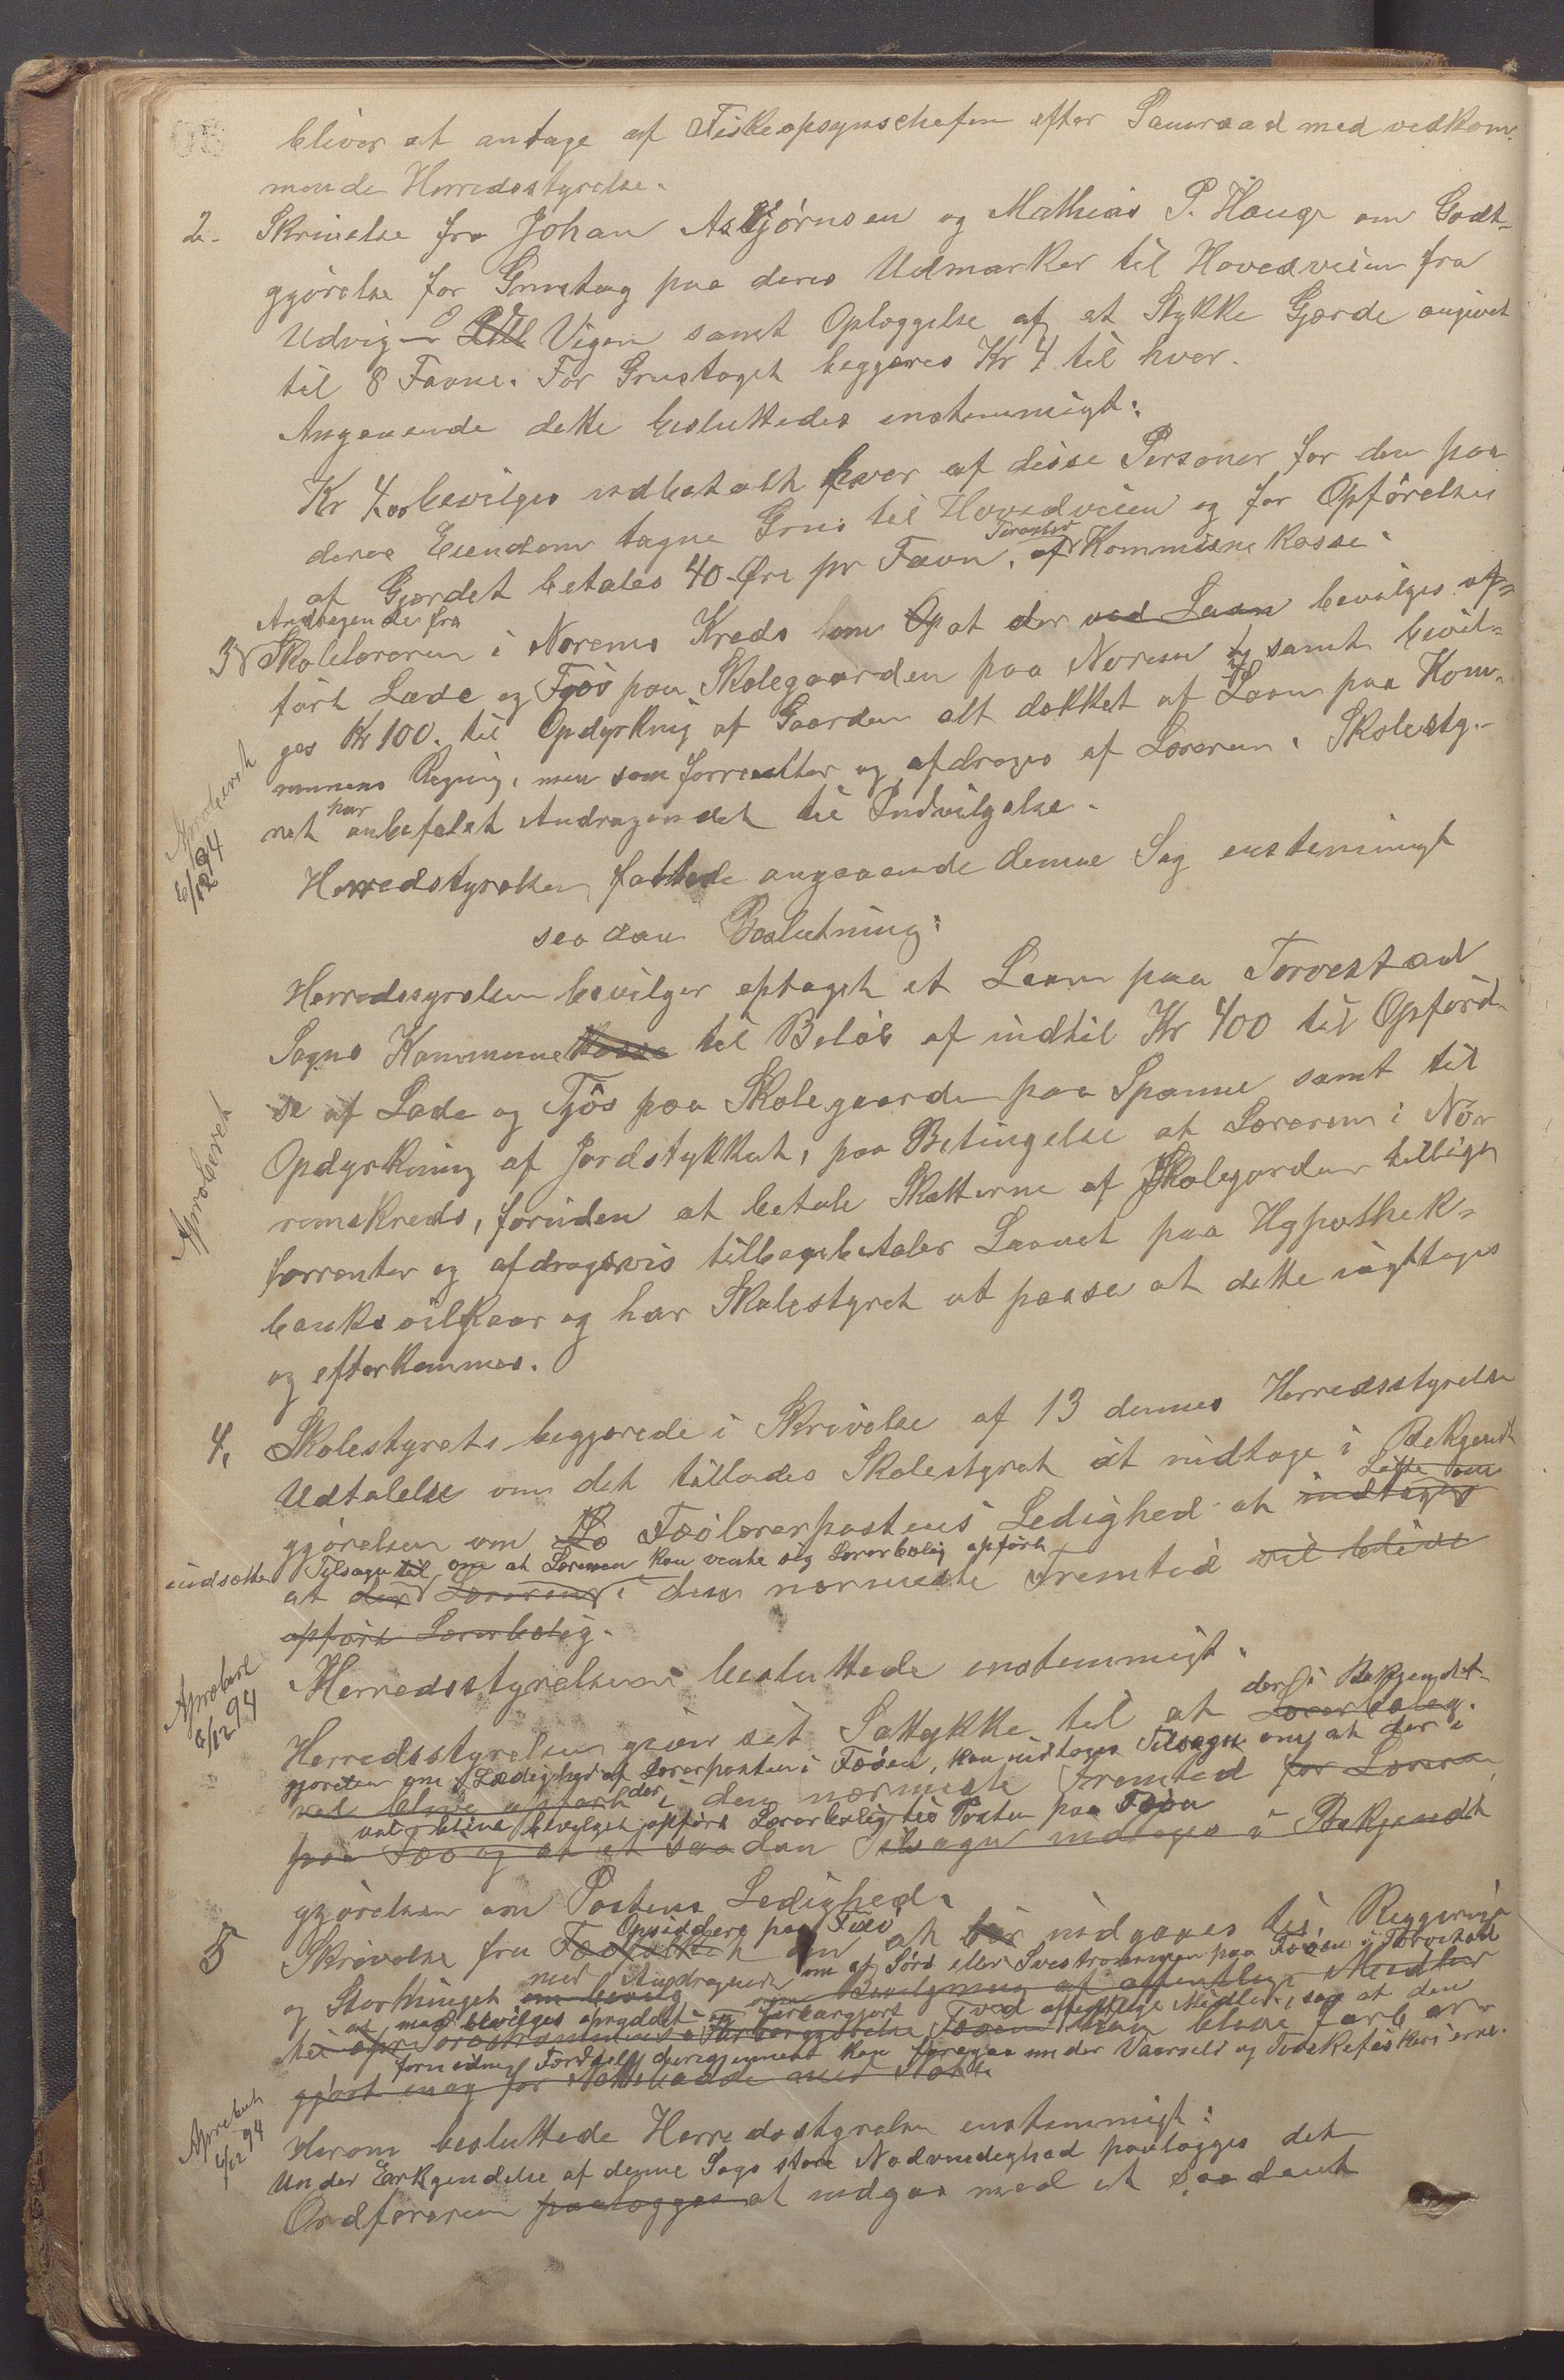 bliver at antage af Fiskeopsynschefen efter Samraad med vedkom-
mende Herredsstyrelse.
2. Skrivelse fra Johan Asbjørnsen og Mathias P. Hauge om Godt-
gjørelse for Grustag paa deres Udmarker til Hovedveien fra
Udvig Vigen samt Oplæggelse af et Stykke Gjerde angivet
til 8 Favne. For Grustaget begjæres Kr 4 til hver.
Angaaende dette besluttedes enstemmigt:
Kr 4,00 bevilges udbetalt hver af disse Personer for den paa
deres Eiendom tagne Grus til Hovedveien og for Opførelse
af Gjærdet betales 40 Øre pr Favn, af Torvestad Kommunekasse.
Andragende fra
3 Skolelæreren i Norems Kreds om at der ved Laan bevilges op-
ført Lade og Fjøs paa Skolegaarden paa Norem samt bevil-
ges Kr 100. til Opdyrkning af Gaarden alt dækket af Laan paa Kom-
munens Regning, men som forrentes og afdrages af Læreren. Skolesty-
ret har anbefalet Andragendet til Indvilgelse.
Aproberet
6/12 94
Herredstyrelsen fattede angaaende denne Sag enstemmigt
saadan Beslutning:
Herredsstyrelsen bevilger optaget et Laan paa Torvestad
Sogns Kommune Kasse til Beløb af indtil Kr 400 til Opførel-
se af Lade og Fjøs paa Skolegaarden paa Spanne samt til
Opdyrkning af Jordstykket, paa Betingelse at Læreren i No-
remskreds, foruden at betale Skatterne af Skolegarden tillige
Aproberet
forrenter og afdragsvis tilbagebetaler Laanet paa Hypothek-
banksvilkaar og har Skolestyret at paase at dette iagttages
og efterkommes.
4, Skolestyrets begjærede i Skrivelse af 13 dennes Herredsstyrelse
Udtalelse om det tillades Skolestyret at indtage i Bekjendt
Løfte om
gjørelsen om Fæølærerpostens Ledighed at indtages
indsætte Tilsagn til om at Læreren kan vente sig Lærerbolig opført
at der Læreren i den nærmeste Fremtid vil blive
opført Lærerbolig.
Aprobert
6/12 94
Herredsstyrelsen besluttede enstemmigt:
der i Bekjendt-
Herredsstyrelsen giver sit Samtykke til at Lærerbolig
gjørelsen om Ledighed af Lærerposten i Fæøen, kan indtages Tilsagn om at der i
vil blive opført der i den nærmeste Fremtid for Læreren
vil blive bevilget opført Lærerbolig til Posten paa Fæøen
paa Fæø og at et saadan Tilsagn indtages i Bekjendt
gjørelsen om Postens Ledighed.
Opsiddere paa Fæø
5 Skrivelse fra om at bør indgaaes til Regjering
og Storthinget med Andragende om at Sørd eller Svestrømmen paa Fæøen i Torvestad
om Bevilgning af offentlige Midler
at maa bevilges opryddet og farbargjort ved offentlige Midler, saa at den
kan blive farbar
fornøden Fordsel derigjennem kan foregaa under Vaarsild og Torskefiskerierne.
Aprobert
6/12 94
Herom besluttede Herredsstyrelsen enstemmigt:
Under Erkjendelse af denne Sags store Nødvendighed paalægges det
Ordføreren paalægges at indgaa med et saadant